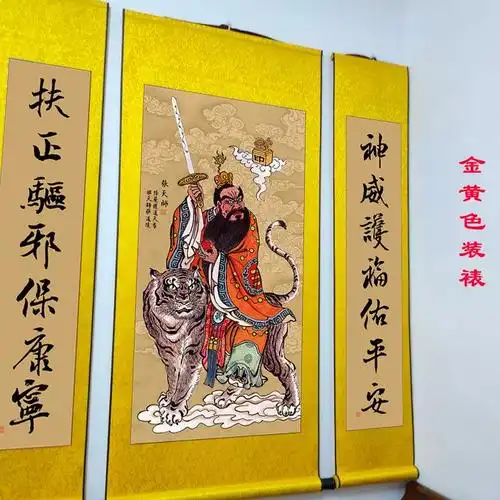 神威護福佑平安
張天師
印
扶正驅邪保康寧
金黄色装裱